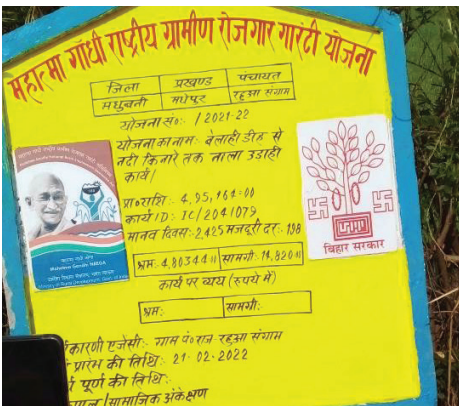 महात्मा गाँधी राष्ट्रीय ग्रामीण रोजगार गारंटी योजना
जिला प्रखण्ड पंचायत
मधुबनी मधेपुर रहुआ संग्राम
योजना सं०: /2021-22
योजना का नाम: बेलाही डीह से
नदी किनारे तक नाला उड़ाही
कार्य।
प्रा० राशि: 4,95,164=00
कार्य ID: IC/2041079
मानव दिवस: 2,425 मजदूरी दर: 198
श्रम: 4,80344 सामग्री: 14,820
कार्य पर व्यय (रुपये में)
श्रम: सामग्री:
कारणी एजेंसी:- ग्राम पं० राज रहुआ संग्राम
प्रारंभ की तिथि: 21-02-2022
पूर्ण की तिथि:-
/सामाजिक अंकेक्षण
Mahatma Gandhi NREGA
बिहार सरकार